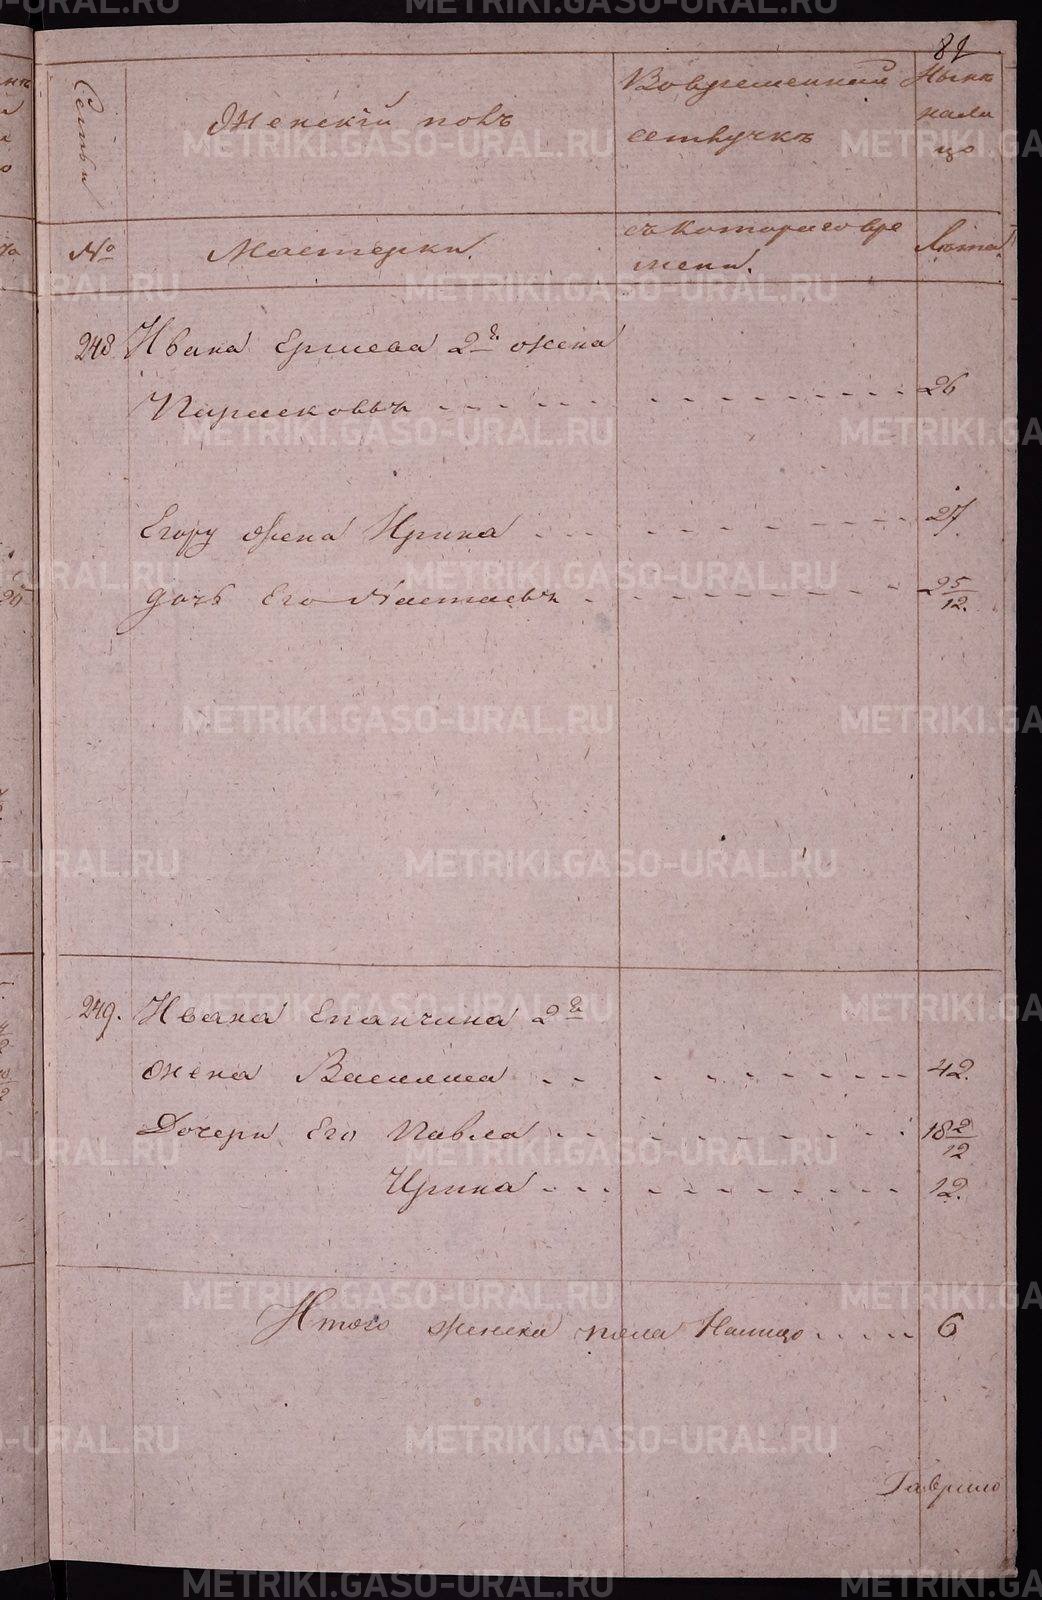 82
Семьи
Женскiй полъ
Во временной
отлучкѣ
Нынѣ
нали
цо
№
Мастерки
съ котораго вре
мени.
Лѣта
248 Ивана Ершева 2я жена
Парасковья 26
Егору жена Ирина 27
дочь Его Настасья 25/12.
249. Ивана Епанчина 2я
жена Василиса 42.
Дочери Его Павла 18 2/12
Ирина 12.
Итого женска пола Налицо 6
Гаврило
METRIKI.GASO-URAL.RU